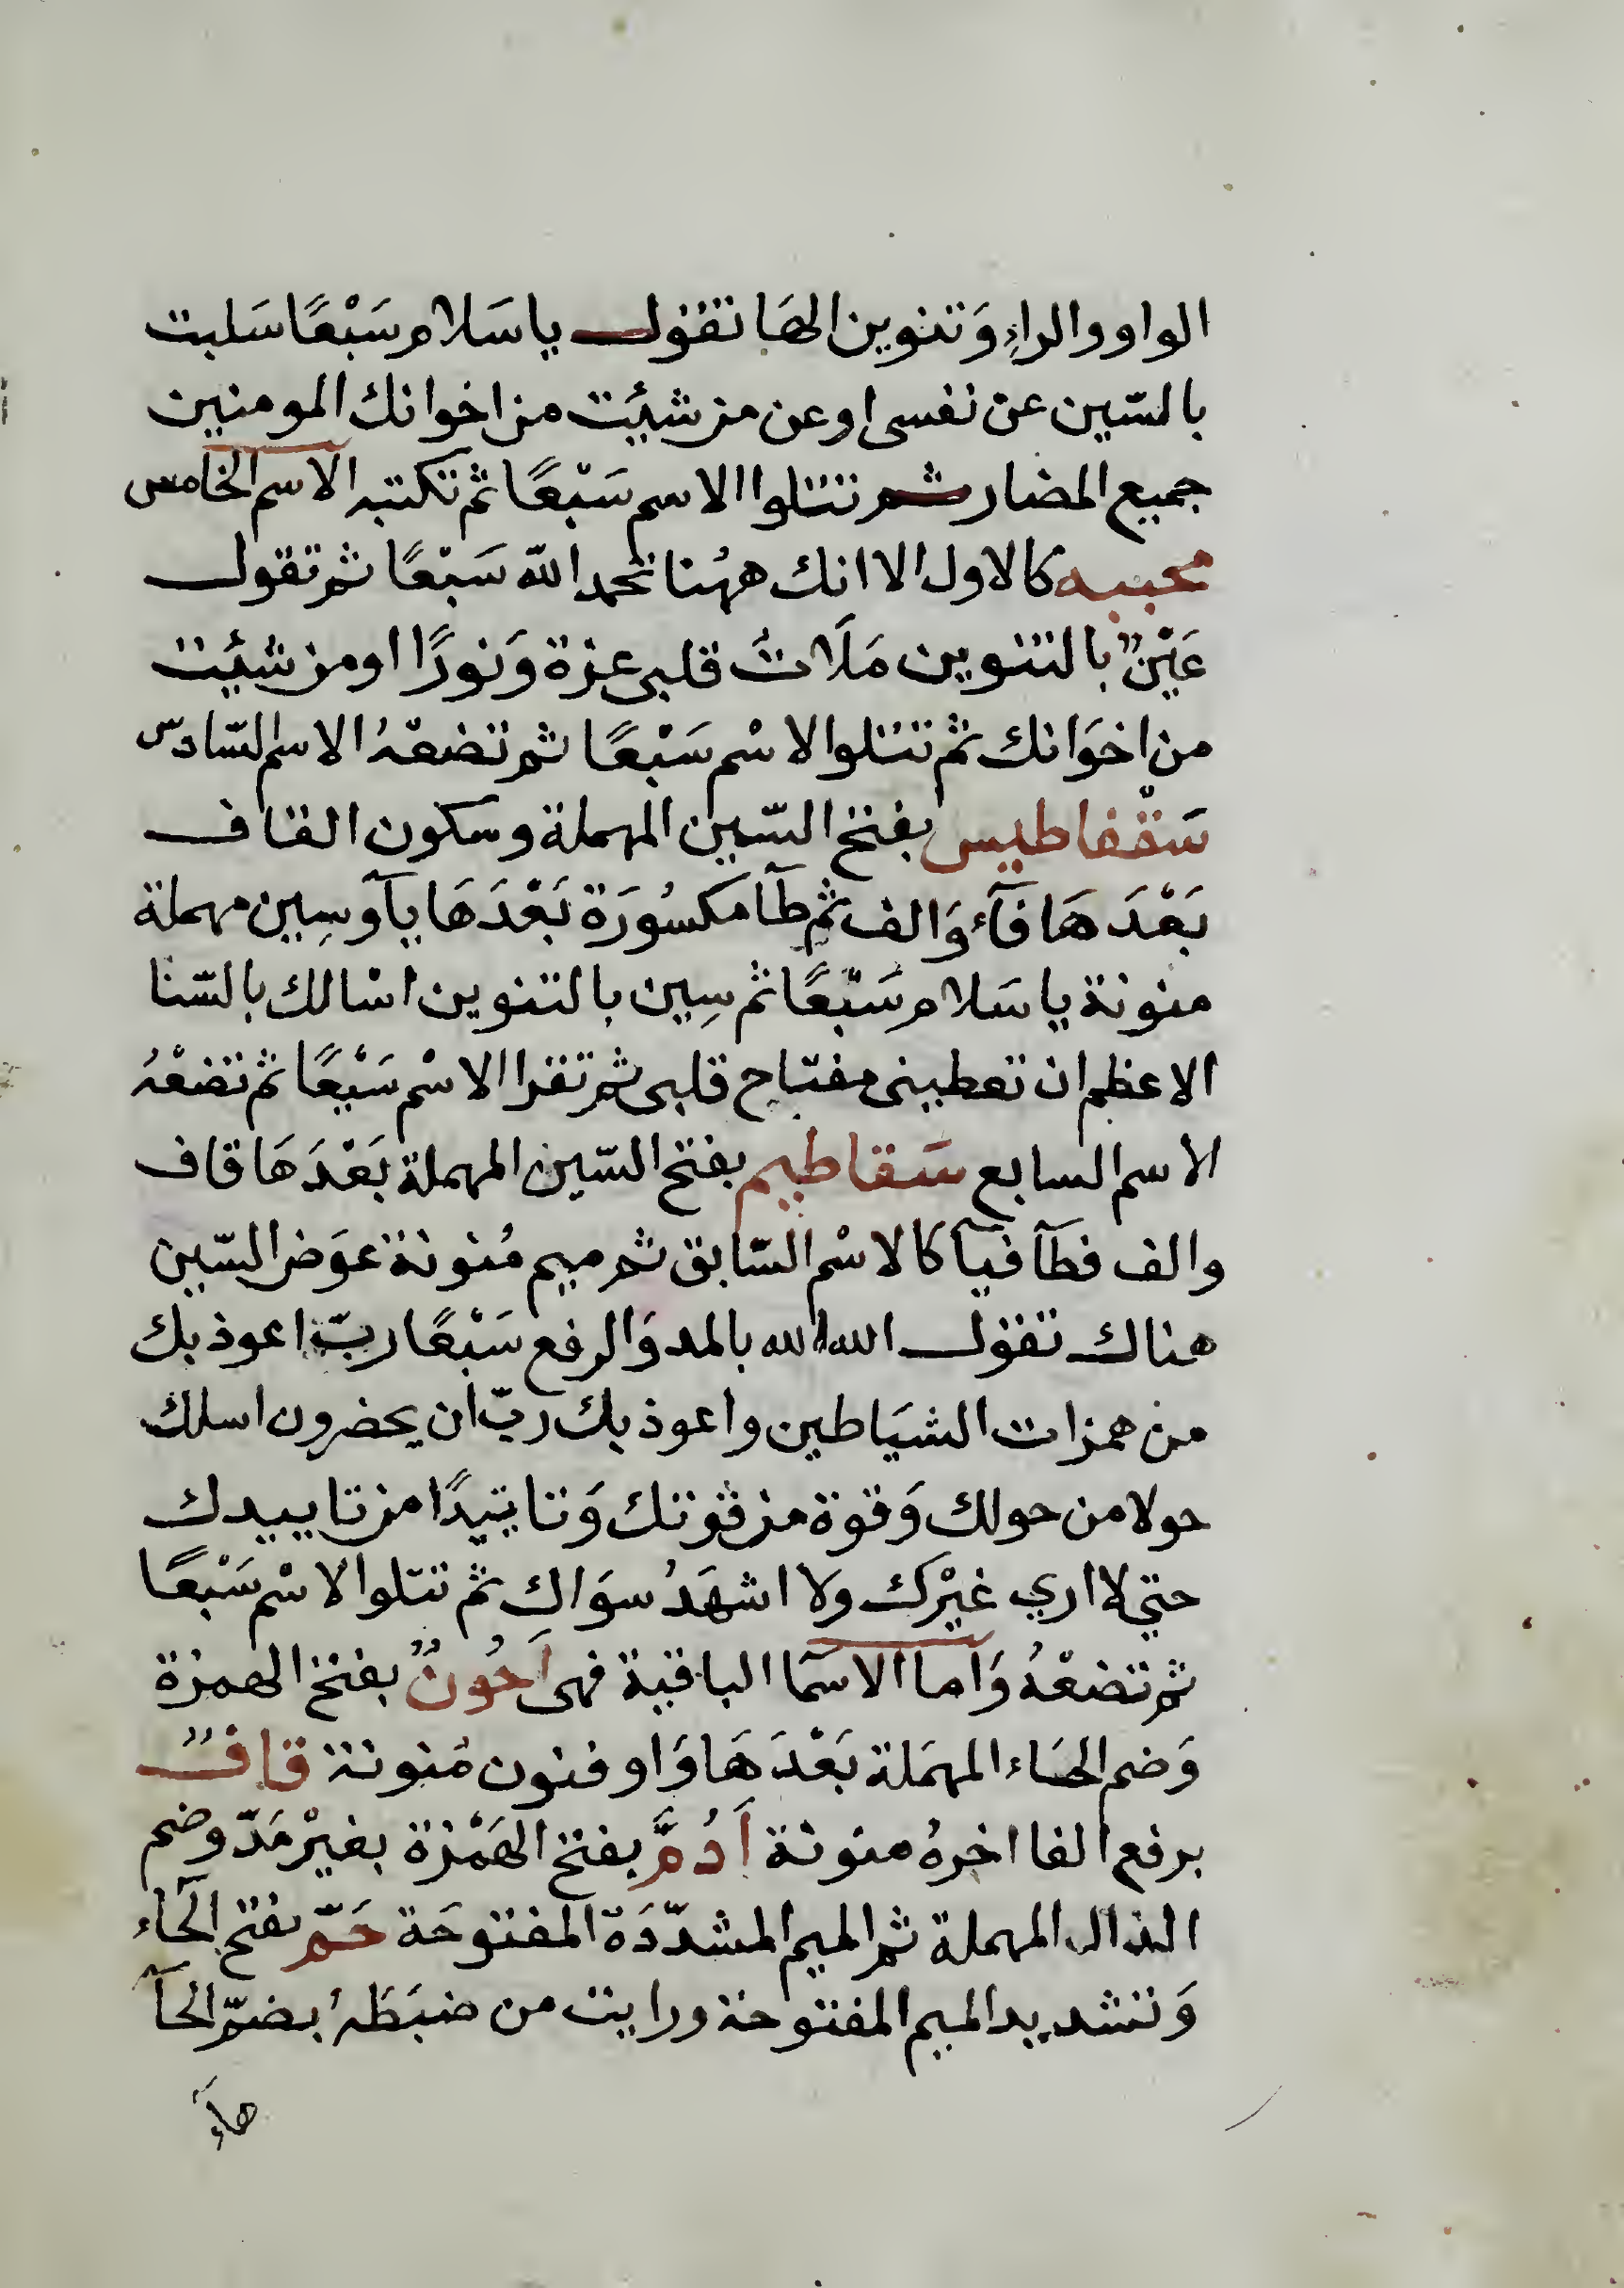 الواو والراءِ وَتنوين الهَا تقول يا سَلام سَبْعًا سَلبت
بالسّين عن نفسى او عن من شئت من اخوانك المومنين
جميع المضار ثم تتلوا الاسم سَبْعًا ثم تكتبه الاسم الخامس
محببه كالاول الا انك ههُنا تحمد الله سَبْعًا ثم تقول
عَيْنٌ بالتنوين مَلَاتُ قلبى عزة وَنورًا او من شئت
من اخوَانك ثم تتلوا الاسْم سَبْعًا ثم تضعْهُ الاسم السّادس
سَقْفاطيس بفتح السّين المهملة وسكون القاف
بَعْدَهَا فآء وَالف ثم طآ مكسُورَة بَعْدَهَا يآ وسِين مهملة
منونة يا سَلام سَبْعًا ثم سِين بالتنوين اسْالك بالسّنا
الاعظم ان تعطينى مفتاح قلبى ثم تقرا الاسْم سَبْعًا ثم تضعْهُ
الاسم السابع سَقاطيم بفتح السّين المهملة بَعْدَهَا قاف
والف فطآ فيآ كالاسْم السّابق ثم ميم مُنونة عوَض السّين
هناك تقول الله الله بالمد وَالرفع سَبْعًا ربّ اعوذ بك
من همزات الشيَاطين واعوذ بك ربّ ان يحضرون اسلك
حولا من حولك وَقوة من قوتك وَتاييدًا من تاييدك
حتي لا اري غيْرك ولا اشهَدُ سوَاكِ ثم تتلوا الاسْم سَبْعًا
ثم تضعْهُ وَاما الاسمَا الباقية فهى اَحُونٌ بفتح الهمزة
وَضم الحَاء المهمَلة بَعْدَهَا وَاو فنون مُنونة قافٌ
برفع الفا اخرهُ منونة اَدُمَّ بفتح الهَمْزة بغيْر مَدّ وضم
الدال المهملة ثم الميم المشدّدَة المفتوحَة حَمَّ بفتح الحَاء
وَتشديد الميم المفتوحة ورايت من ضبَطَهُ بضمّ الحآ